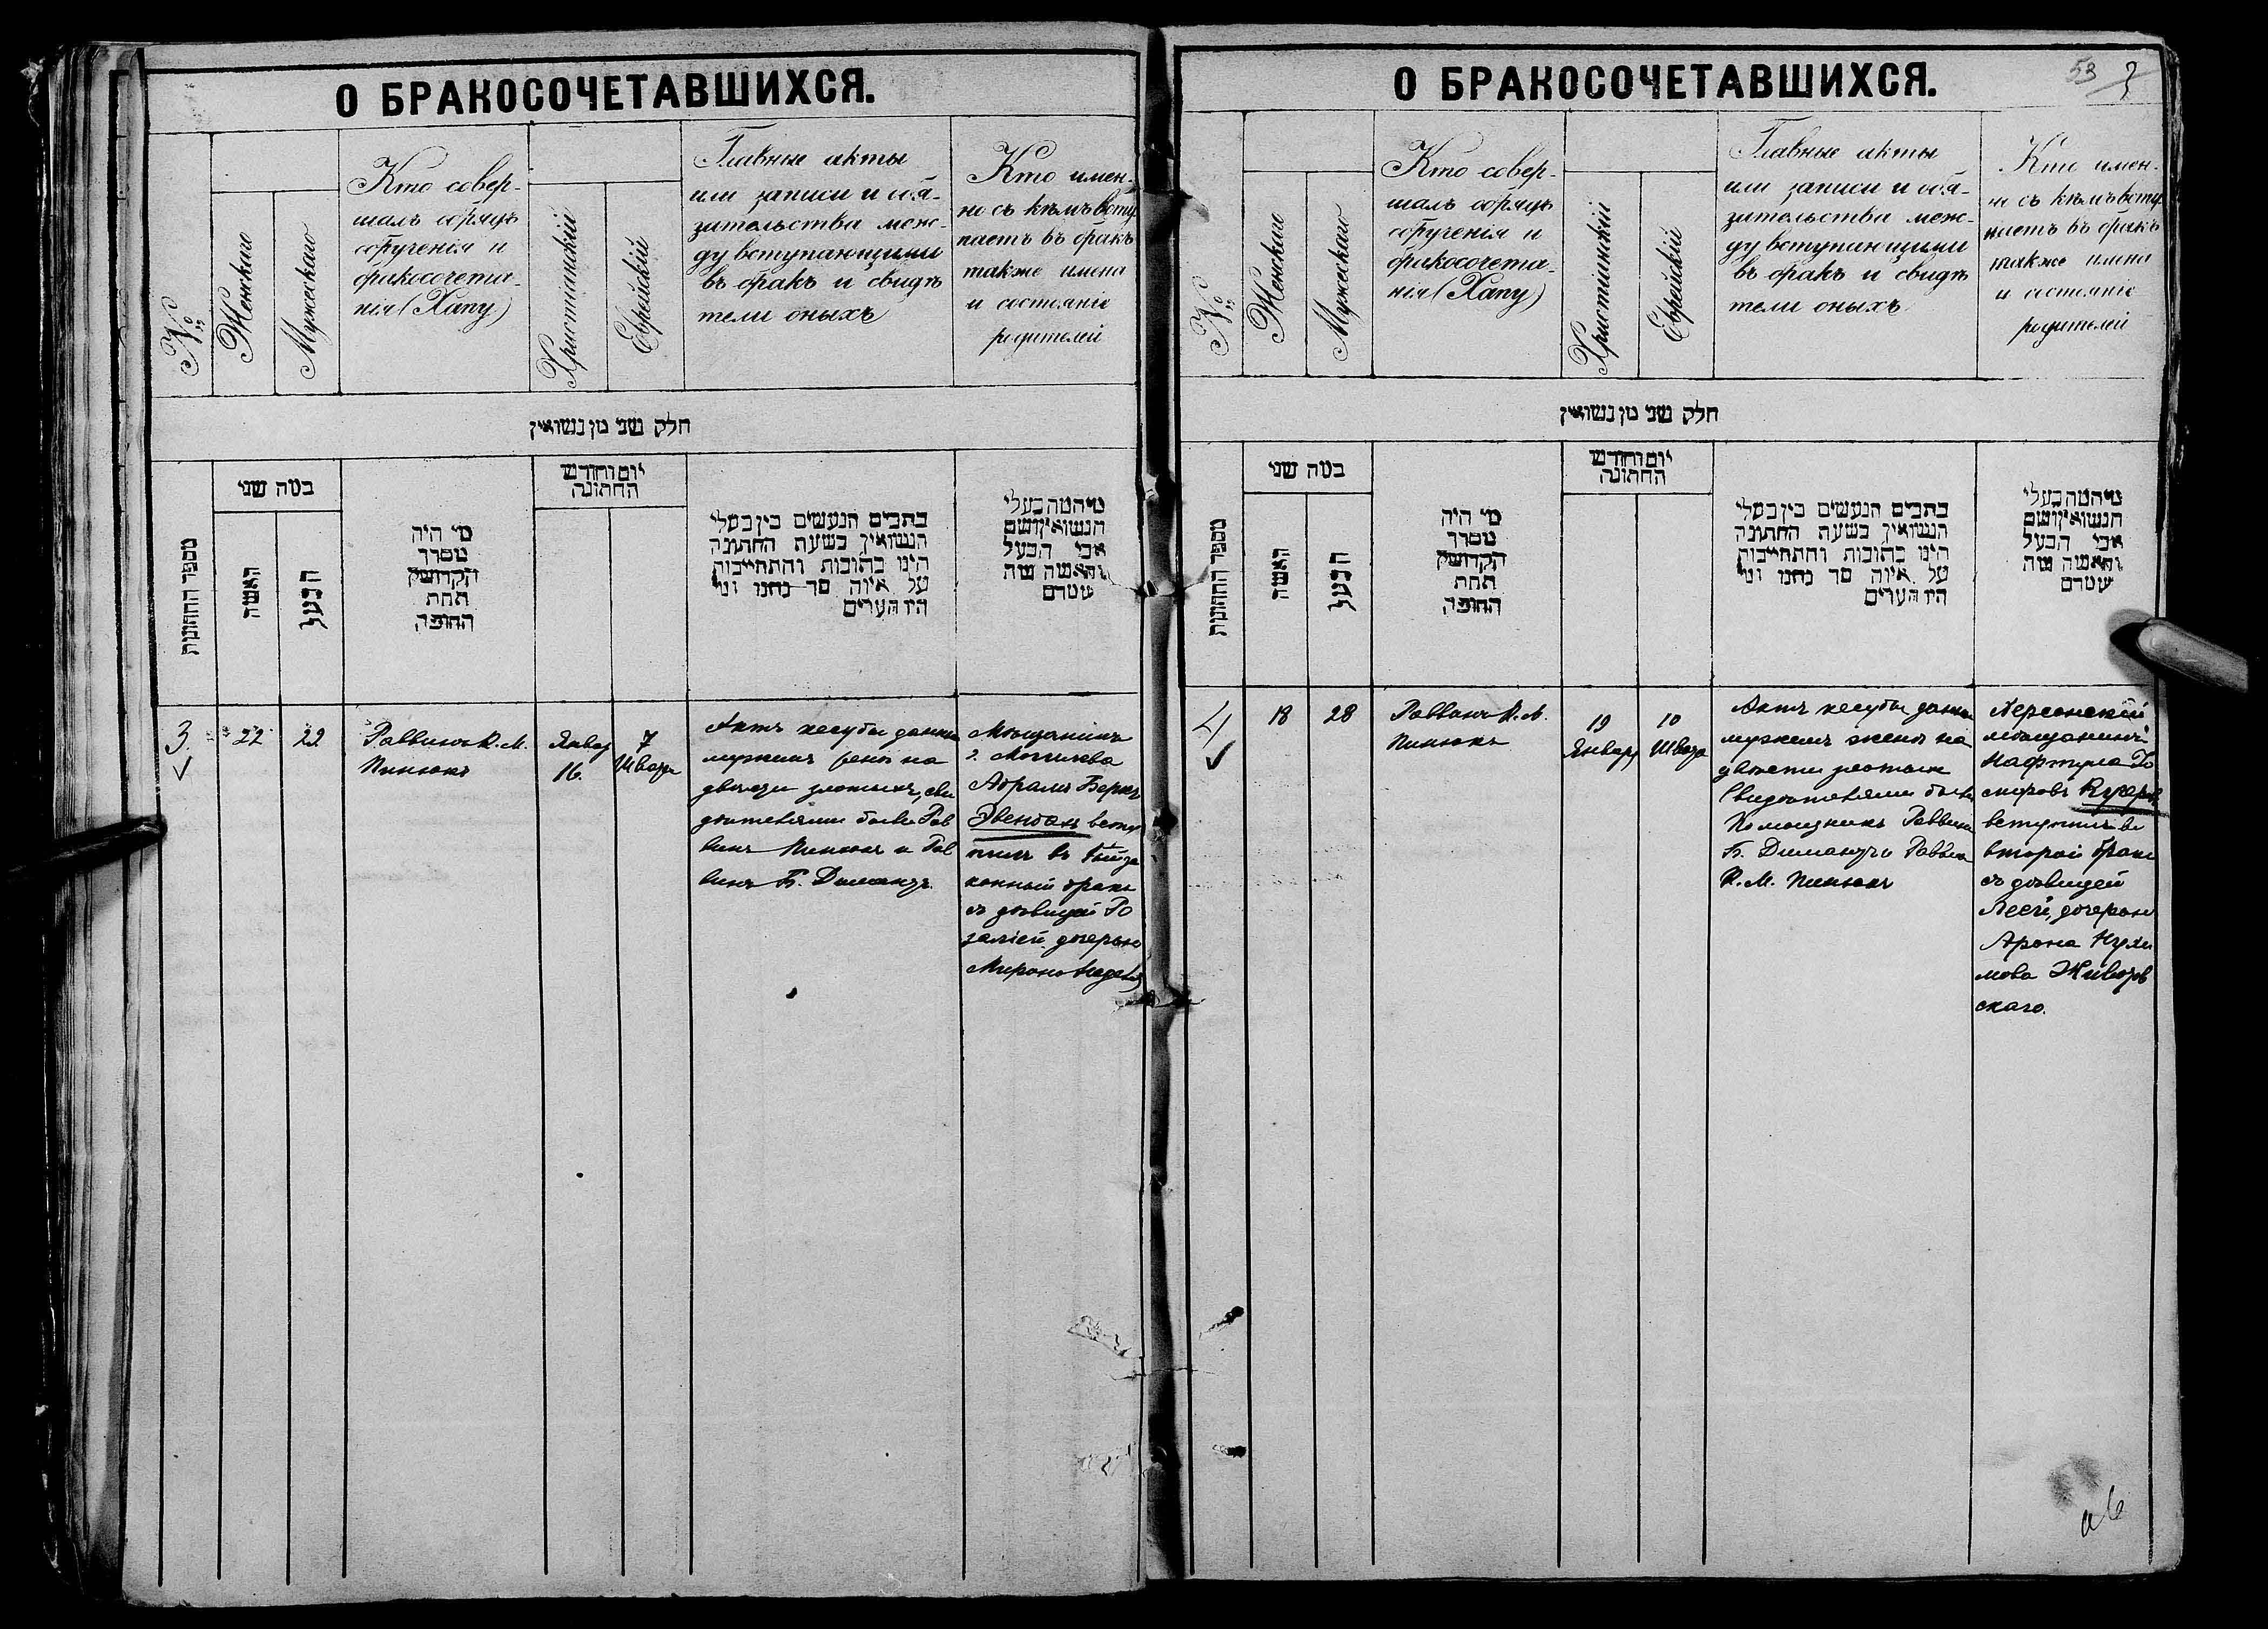 О БРАКОСОЧЕТАВШИХСЯ.
№
Женскаго
Мужескаго
Кто совер-
шалъ обрядъ
обрученія и
бракосочета-
нія (Хапу)
Христіанскій
Еврейскій
Главные акты
или записи и обя-
зательства меж-
ду вступающими
въ бракъ и свидѣ
тели оныхъ
Кто имен-
но съ кѣмъ всту
паетъ въ бракъ
также имена
и состояніе
родителей
חלק שני מן נשואין
מספר החתונות
כמה שני
האשה
הבעל
מי היה
מסדר
הקדושין
תחת
החופה
יום וחודש
החתונה
כתבים הנעשים בין בעלי
הנשואין בשעת החתונה
הינו כתובות והתחייבות
על איזה סך נתנו ומי
היו העדים
מי המה בעלי
הנשואין ושם
אבי הבעל
והאשה מה
שמם
3.
22
22
Раввинъ К. М.
Пинюкъ
Январ
16.
7
Швата
Актъ кесубы данъ
мужемъ женѣ на
двѣсти злотыхъ, сви
дѣтелями были Рав
винъ Пинюкъ и Рав
винъ Б. Димандъ.
Мѣщанинъ
г. Могилева
Абрамъ Берк
всту
пилъ въ за
конный бракъ
съ дѣвицей Ро
заліей, дочерью
Мирона
О БРАКОСОЧЕТАВШИХСЯ.
53
№
Женскаго
Мужескаго
Кто совер-
шалъ обрядъ
обрученія и
бракосочета-
нія (Хапу)
Христіанскій
Еврейскій
Главные акты
или записи и обя-
зательства меж-
ду вступающими
въ бракъ и свидѣ
тели оныхъ
Кто имен-
но съ кѣмъ всту
паетъ въ бракъ
также имена
и состояніе
родителей
חלק שני מן נשואין
מספר החתונות
כמה שני
האשה
הבעל
מי היה
מסדר
הקדושין
תחת
החופה
יום וחודש
החתונה
כתבים הנעשים בין בעלי
הנשואין בשעת החתונה
הינו כתובות והתחייבות
על איזה סך נתנו ומי
היו העדים
מי המה בעלי
הנשואין ושם
אבי הבעל
והאשה מה
שמם
4
18
28
Раввинъ К. М.
Пинюкъ
19
Январ
10
Швата
Актъ кесубы данъ
мужемъ женѣ на
двѣсти злотыхъ
Свидѣтелями были
Помощникъ Раввина
Б. Димандъ и Раввин
К. М. Пинюкъ
Херсонскій
мѣщанинъ
Нафтула
вступилъ во
второй бракъ
съ дѣвицей
Леей, дочерью
Арона Нухи
мова
скаго.